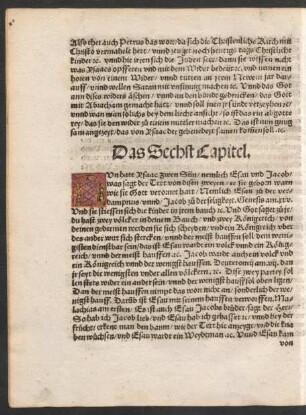 Also thet auch Petrus das wort da sich die Christenliche Kirch mit
Christo vermahelt hett / unnd zeuget noch heutigs tags Christliche
kinder ꝛc. unnd die irren sich die Juden seer / dann sie wissen nicht
was Isaacs opfferen unnd mit dem Wider bedeut ꝛc. unnd namen ein
horen von einem Wider / unnd tutten an irem Newen jar dar
auff / unnd wellen Satan mit unsinnig machen ꝛc. Unnd das Got
dann dises widers äschen / unnd an den bunde gedencken / des Gott
mit Abraham gemacht hatt / unnd soll inen ir sünde verzeyhen ꝛc /
unnd was man söliche bey dem liecht ansicht / so ist das nur
rey / das sie den wider zů einem mittler machen ꝛc. Das ist nun gnůg
sam angezeyt / das von Isaac der gebenedeyt samen kommen soll. ꝛc.
Das Sechst Capitel.
Nun hatt Isaac zwen Sün / nemlich Esau und Jacob /
was sagt der Text von disen zweyen ee sie geboren warn
wie sie Got verornt hatt. Nemlich Esau zů der ver-
dampnus / unnd Jacob zů der seligkeyt. Genesis am. xxv.
Und sie stiessen sich die kinder in irem bauch ꝛc. Und Got saget zů ir /
du hast zwey völcker in deinem Bauch / und zwey Königreich / von
deinen gebernten werden sie sich scheyden / und ein Königreich über
des ander wirt sich stercken / unnd der meist hauff soll dem wenigsten
dienstpar sein / das ist Esau warde ein volck unnd ein König-
reich / unnd der meist hauffen ꝛc. Jacob warde auch ein volck unnd
ein Königreich / unnd der wenigst hauffen. Deutero. am. vij. dan
je seyt die wenigsten under allen völckern / ꝛc. Dise zwey partey sol-
len stets wider ein ander sein / unnd der wenigst hauff sol oben ligen /
Dan der meist hauffen nimpt das wort nicht an / sonder der we-
nigst hauff. Darub ist Esau mit seinem hauffen verworffen. Ma-
lachias am ersten / Es ist auch Esau Jacobs brůder / saget der Herr
So hab ich Jacob lieb / und Esau hab ich gehasset ꝛc / unnd bey der
frücht / erkent man den baum / wie der Text hie anzeygt / und die kna
ben wůchsen / und Esau warde ein Weydtman ꝛc. Unnd Esau kam
von